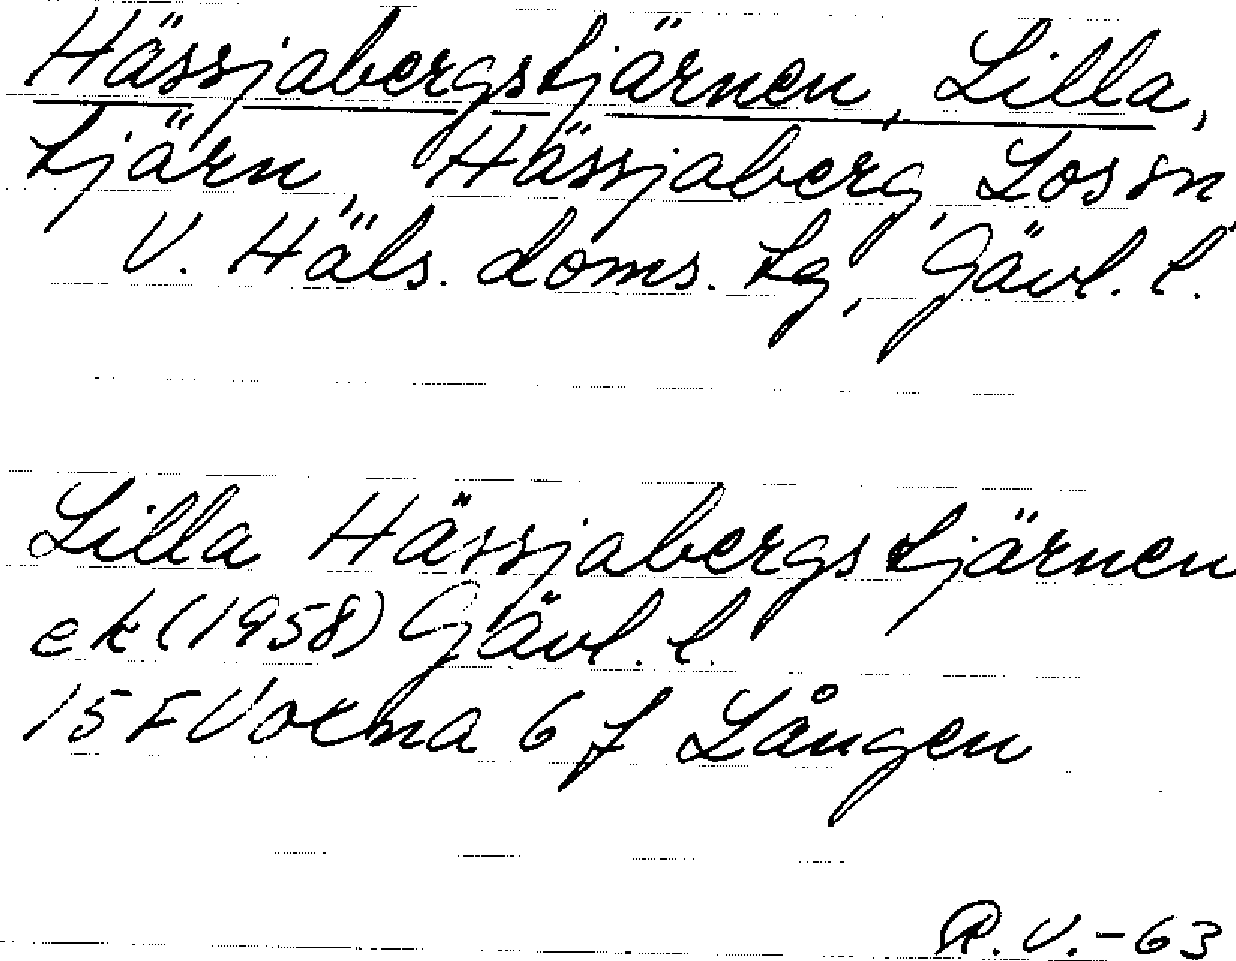 Hässjabergstjärnen, Lilla,
tjärn, Hässjaberg, Los sn
V. Häls. doms. tg, Gävl. l.
Lilla Hässjabergstjärnen
ek (1958) Gävl. l.
15 F Voxna 6 f Lången
R. V. -63